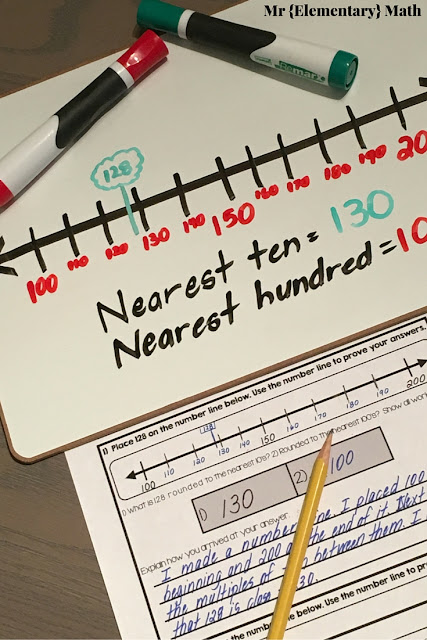 Mr {Elementary} Math
Remarx
128
100 110 120 130 140 150 160 170 180 190 200
Nearest ten = 130
Nearest hundred = 10
1) Place 128 on the number line below. Use the number line to prove your answers.
128
100 110 120 130 140 150 160 170 180 190 200
1) What is 128 rounded to the nearest 10? 2) Rounded to the nearest 100? Show all work
1) 130 2) 100
Explain how you arrived at your answer.
I made a number line. I placed 100
beginning and 200 at the end of it. Next
the multiples of between them. I
that 128 is 30.
number line below. Use the number line to pr